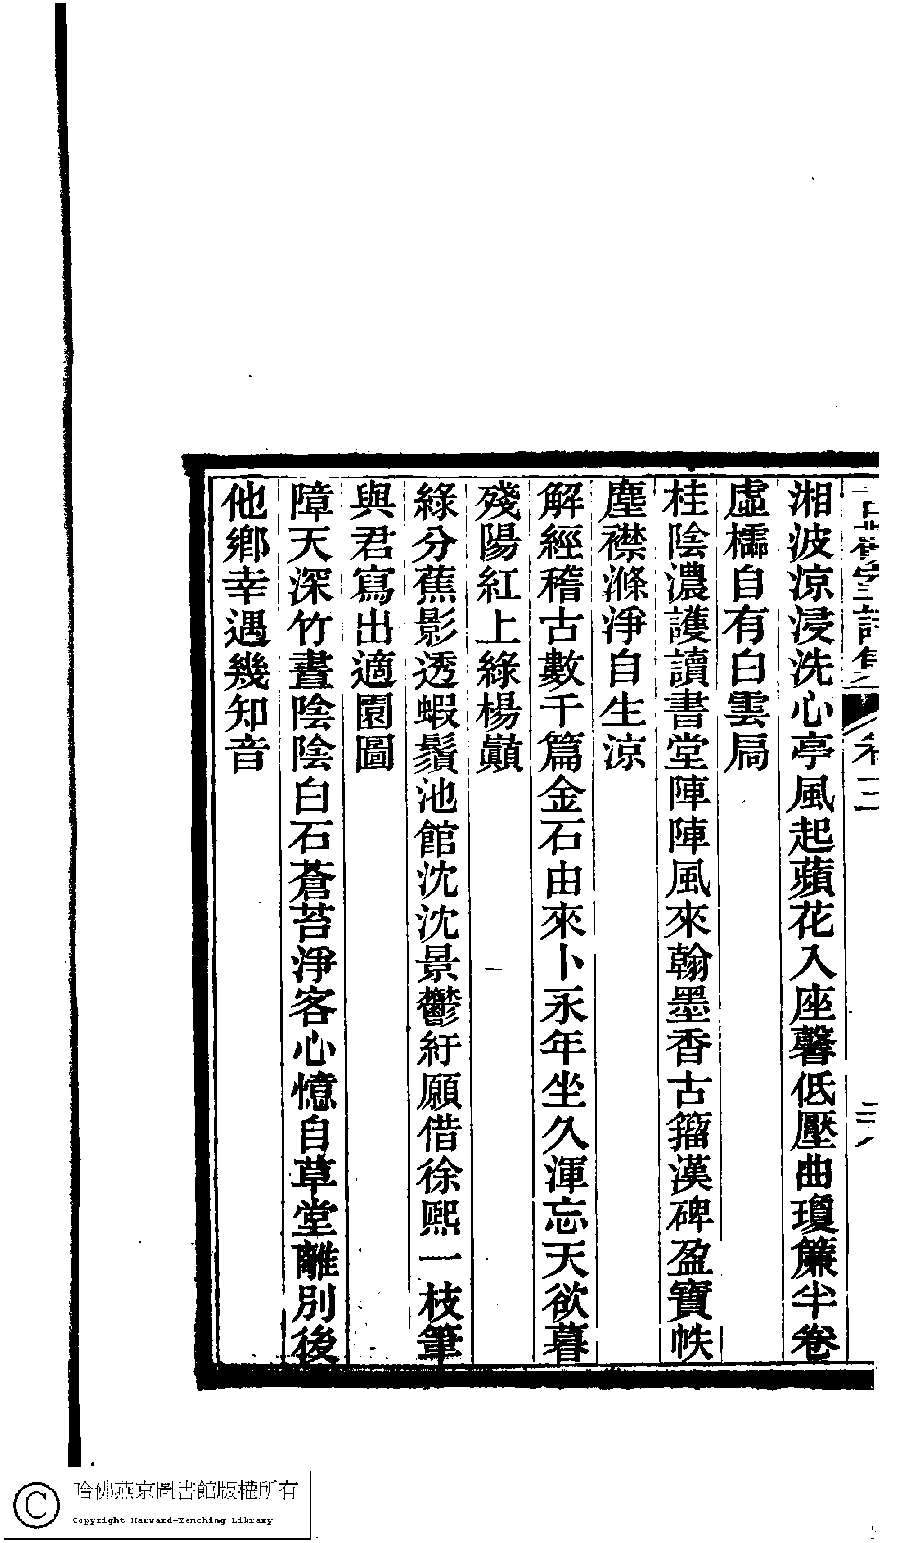 湘波涼浸洗心亭風起蘋花入座馨低壓曲瓊簾半卷
虛櫺自有白雲局
桂陰濃護讀書堂陣陣風來翰墨香古籀漢碑盈寶帙
塵襟滌淨自生涼
解經稽古數千篇金石由來卜永年坐久渾忘天欲暮
殘陽紅上綠楊巔
綠分蕉影透蝦鬚池館沈沈景鬱紆願借徐熙一枝筆
與君寫出適園圖
障天深竹晝陰陰白石蒼苔淨客心憶自草堂離別後
他鄉幸遇幾知音
哈佛燕京圖書館版權所有
Copyright Harvard-Yenching Library